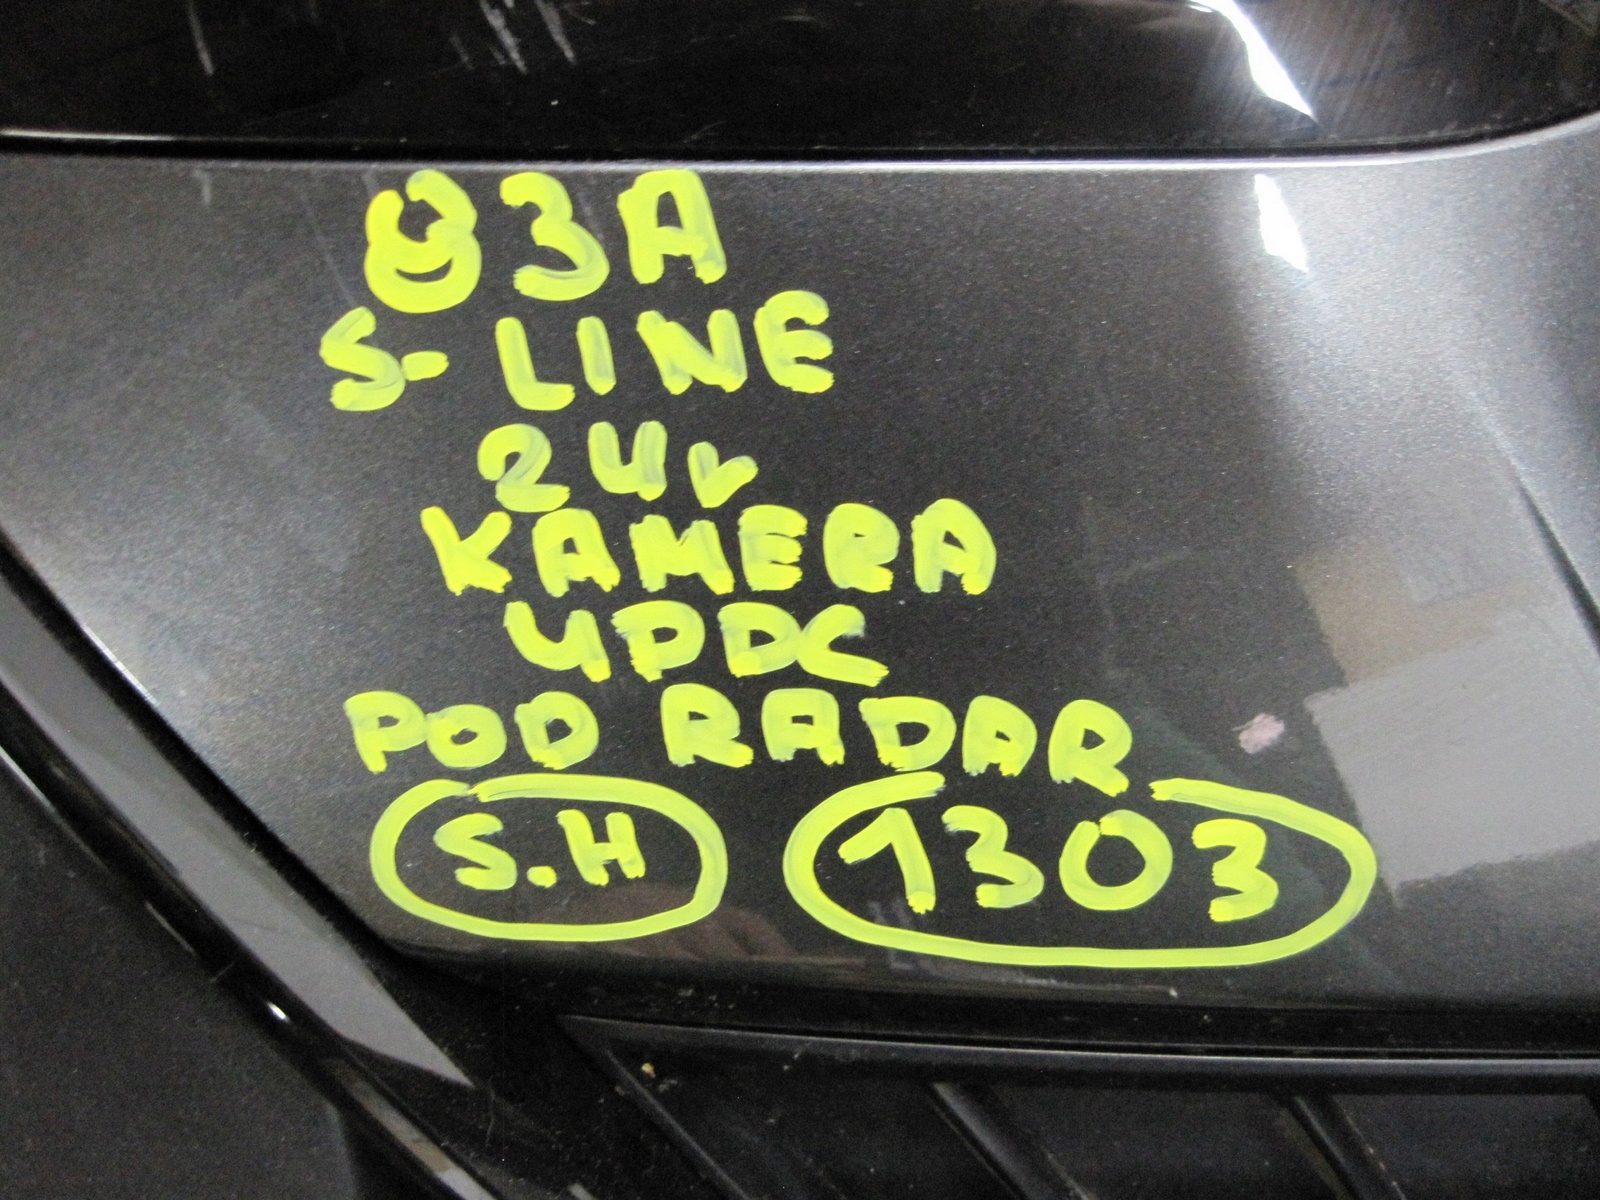 83A
S-LINE
24r
KAMERA
4PDC
POD RADAR
S.H 1303